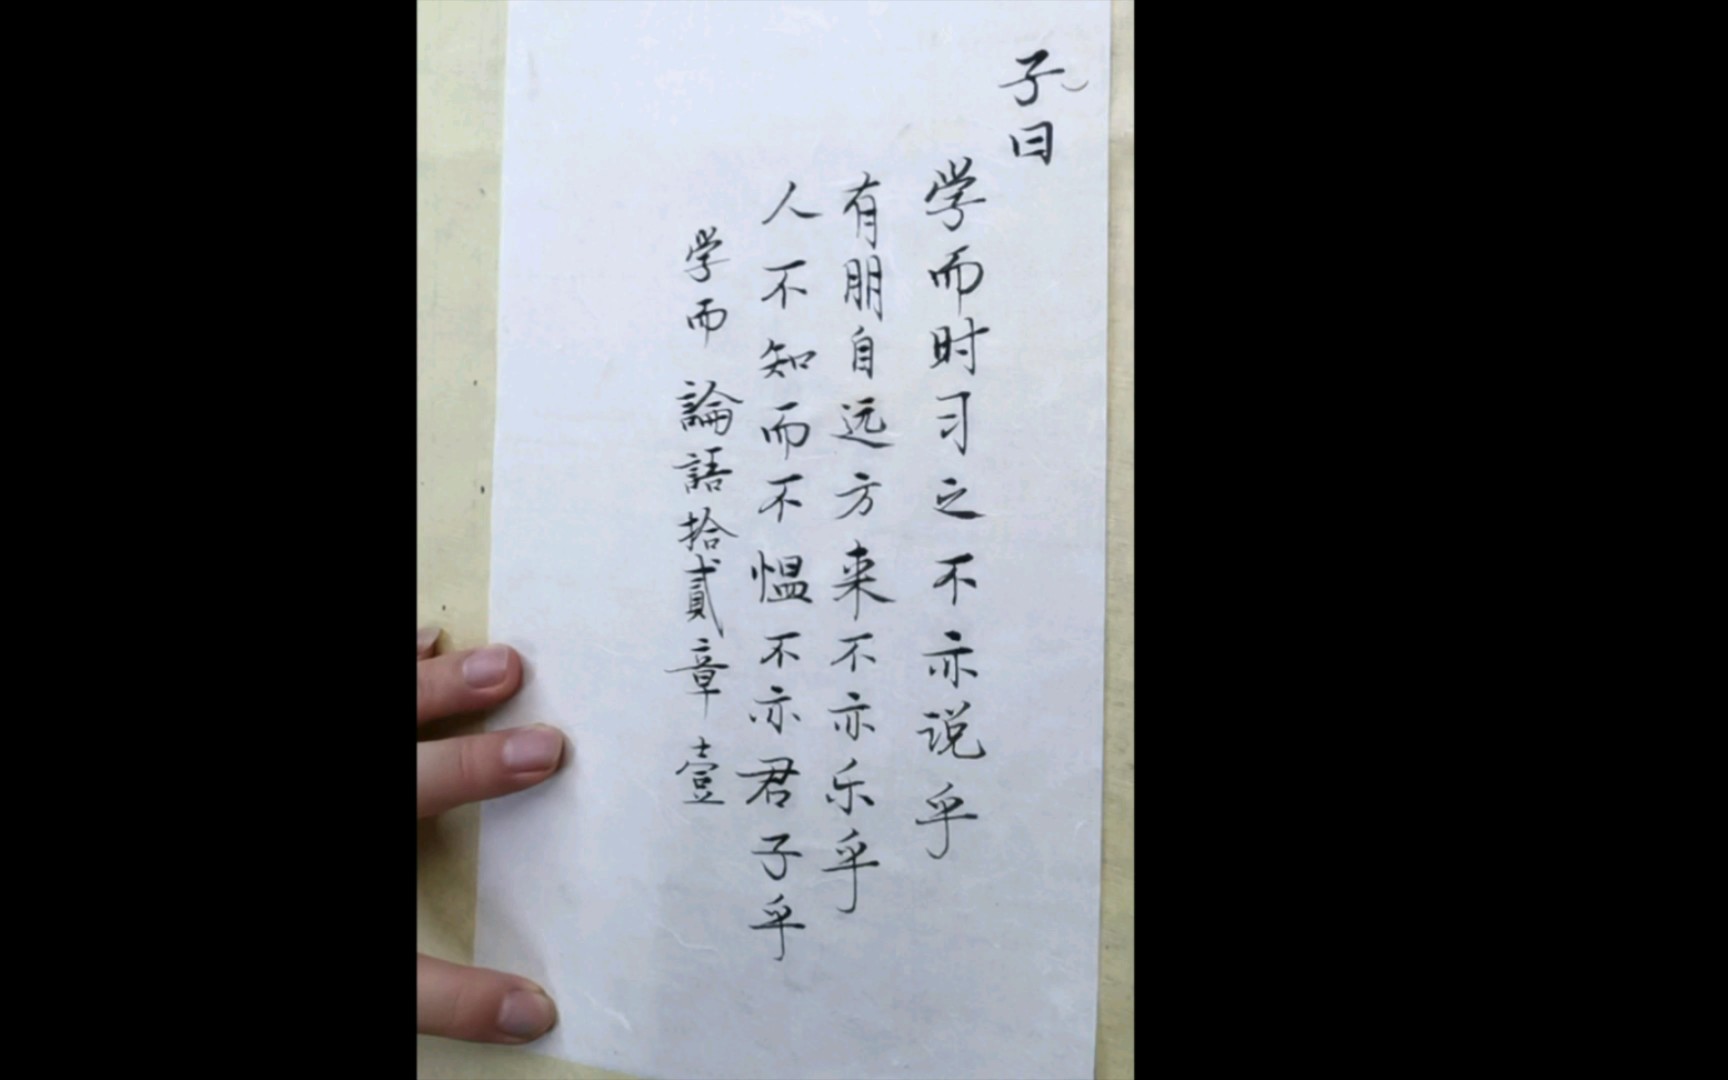 子曰
学而时习之不亦说乎
有朋自远方来不亦乐乎
人不知而不愠不亦君子乎
学而 論語拾貳章 壹